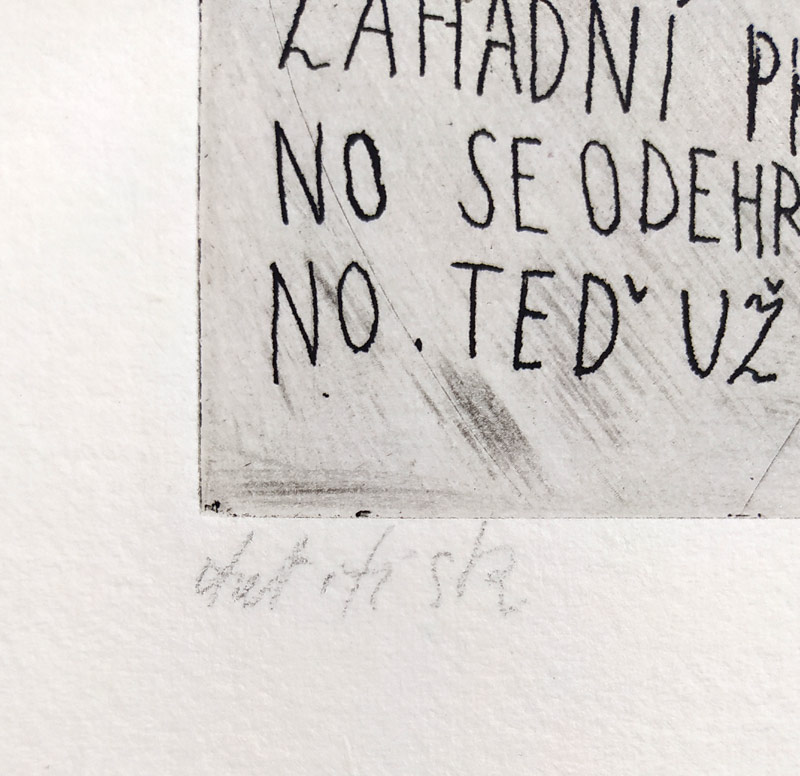 ZAHADNÍ
NO SE ODEHR
NO. TEĎ UŽ